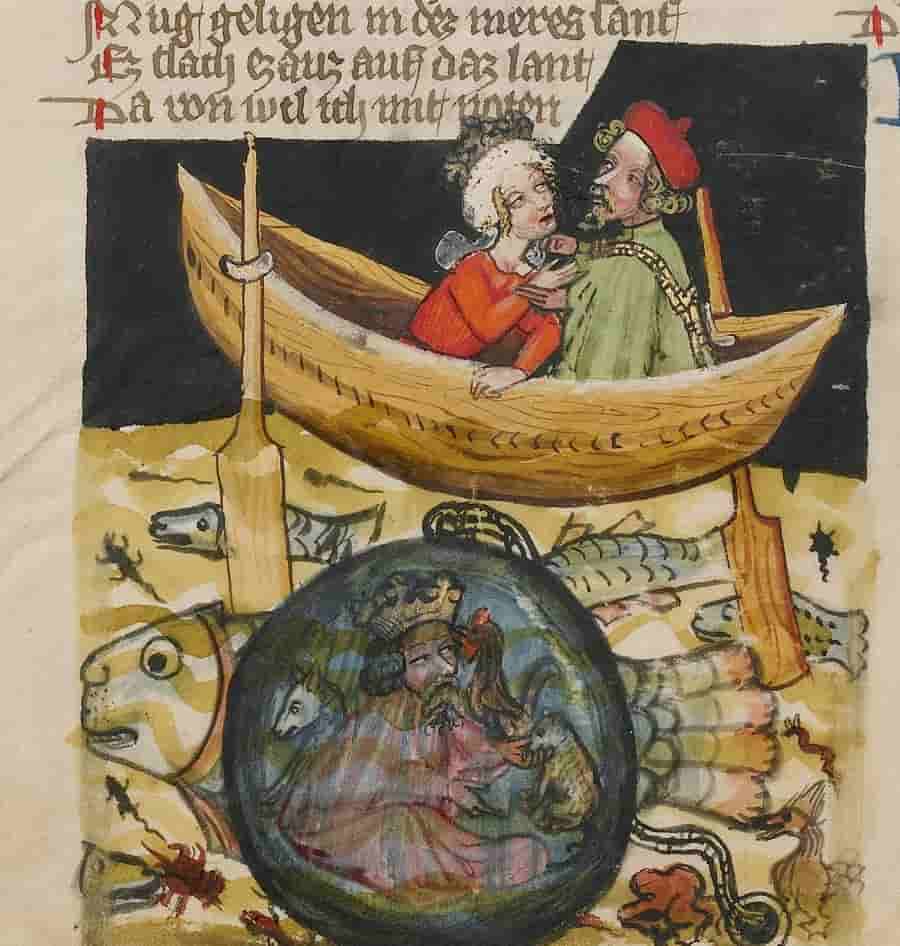 Mug geligen in dez meres sant
Ez slach ez auz auf daz lant
Da von wil ich mit noten
D